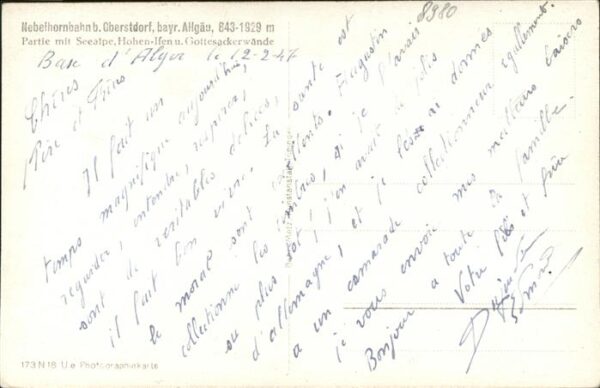 Nebelhornbahn b. Oberstdorf, bayr. Allgäu, 843-1929 m
Partie mit Seealpe, Hohen-Ifen u. Gottesackerwände
8980
Base d'Alger le 12-2-47
Chères
Père et Frères
Il fait un
temps magnifique aujourd'hui,
regarder, entendre, respirer,
sont de véritables délices,
il fait bon vivre. La santé est
le moral sont excellents. Augustin
collectionne les timbres, si je l'avais
su plus tôt, j'en avait de jolis
d'allemagne, et je les ai donnés
a un camarade collectionneur egallement.
je vous envoie mes meilleurs baisers
Bonjour a toute la famille
Votre fils et frère
173 N 18 Ue Photographiekarte